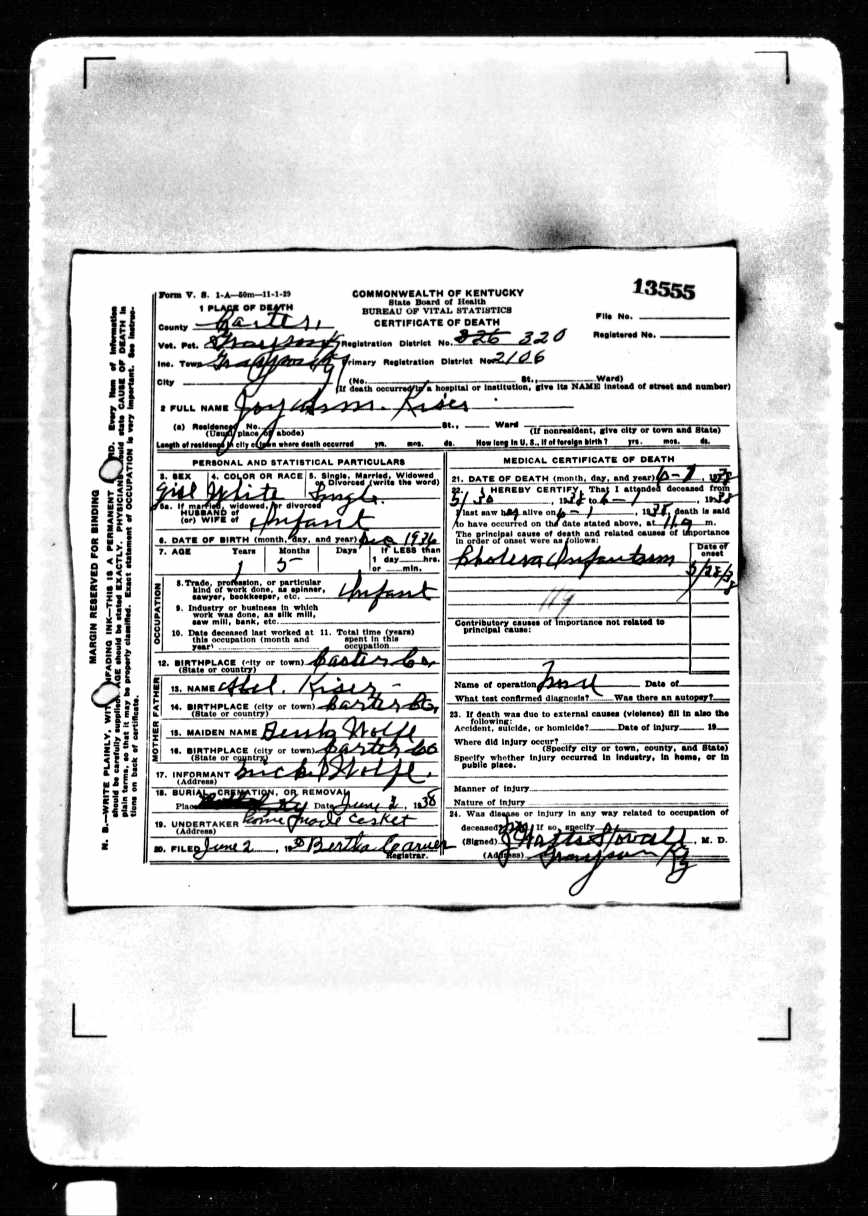 Form V. S. 1-A—50m—11-1-29
COMMONWEALTH OF KENTUCKY
State Board of Health
BUREAU OF VITAL STATISTICS
CERTIFICATE OF DEATH
13555
1 PLACE OF DEATH
County Carter
File No.
Vot. Pct. Grayson Registration District No. 326 320
Registered No.
Inc. Town Grayson Ky Primary Registration District No. 2106
City (No. St., Ward)
(If death occurred in a hospital or institution, give its NAME instead of street and number)
2 FULL NAME Joy Ann Kiser
(a) Residence, No. St., Ward
(Usual place of abode) (If nonresident, give city or town and State)
Length of residence in city or town where death occurred yrs. mos. ds. How long in U. S., if of foreign birth? yrs. mos. ds.
PERSONAL AND STATISTICAL PARTICULARS
3. SEX 4. COLOR OR RACE 5. Single, Married, Widowed or Divorced (write the word)
Girl White Single
5a. If married, widowed, or divorced
HUSBAND of
(or) WIFE of Infant
6. DATE OF BIRTH (month, day, and year) Dec 1936
7. AGE Years Months Days If LESS than
1 5 1 day hrs.
or min.
OCCUPATION
8. Trade, profession, or particular
kind of work done, as spinner,
sawyer, bookkeeper, etc. Infant
9. Industry or business in which
work was done, as silk mill,
saw mill, bank, etc.
10. Date deceased last worked at 11. Total time (years)
this occupation (month and spent in this
year) occupation
12. BIRTHPLACE (city or town) Carter Co.
(State or country)
FATHER
13. NAME Abel Kiser
14. BIRTHPLACE (city or town) Carter Co,
(State or country)
MOTHER
15. MAIDEN NAME Wolfe
16. BIRTHPLACE (city or town) Carter Co
(State or country)
17. INFORMANT Wolfe.
(Address)
18. BURIAL, CREMATION, OR REMOVAL
Place Ky Date June 2, 1938
19. UNDERTAKER home made casket
(Address)
20. FILED June 2, 19 Bertha Carver
Registrar.
MEDICAL CERTIFICATE OF DEATH
21. DATE OF DEATH (month, day, and year) 6-1, 1938
22. I HEREBY CERTIFY, That I attended deceased from
5/30, 1938 to 6-1, 1938
I last saw her alive on 6-1, 1938, death is said
to have occurred on the date stated above, at m.
The principal cause of death and related causes of importance
in order of onset were as follows:
Date of
onset
Cholera Infantum 5/28/38
119
Contributory causes of importance not related to
principal cause:
Name of operation None Date of
What test confirmed diagnosis? Was there an autopsy?
23. If death was due to external causes (violence) fill in also the
following:
Accident, suicide, or homicide? Date of injury 19
Where did injury occur?
(Specify city or town, county, and State)
Specify whether injury occurred in industry, in home, or in
public place.
Manner of injury
Nature of injury
24. Was disease or injury in any way related to occupation of
deceased? No If so, specify
(Signed) J Watts Stovall, M. D.
(Address) Grayson Ky
MARGIN RESERVED FOR BINDING
N. B.—WRITE PLAINLY, WITH UNFADING INK—THIS IS A PERMANENT RECORD. Every item of information
should be carefully supplied. AGE should be stated EXACTLY. PHYSICIANS should state CAUSE OF DEATH in
plain terms, so that it may be properly classified. Exact statement of OCCUPATION is very important. See instruc-
tions on back of certificate.